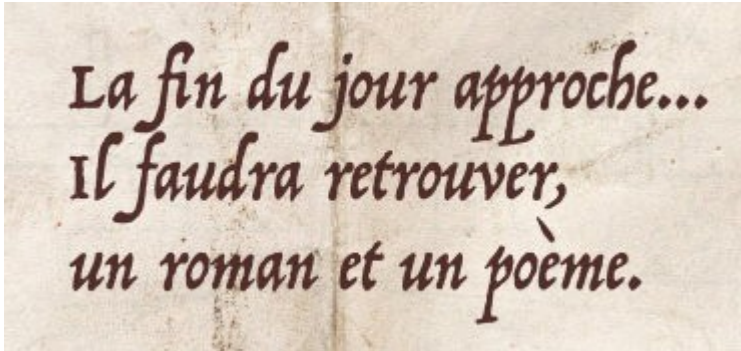 La fin du jour approche...
Il faudra retrouver,
un roman et un poème.